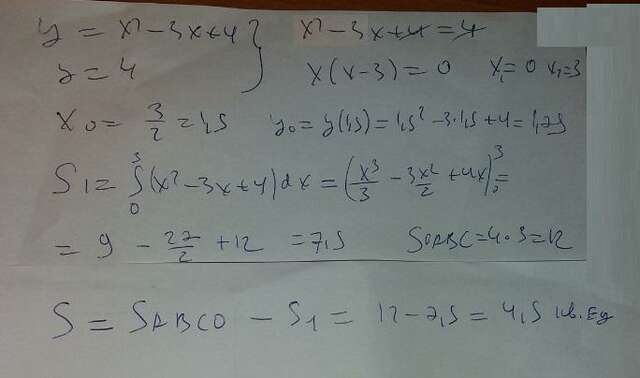 y = x² - 3x + 4 } x² - 3x + 4 = 4
y = 4 x(x-3) = 0 x₁ = 0 x₂ = 3
x₀ = 3/2 = 1,5 y₀ = y(1,5) = 1,5² - 3·1,5 + 4 = 1,75
S₁ = ∫₀³ (x² - 3x + 4) dx = (x³/3 - 3x²/2 + 4x)|₀³ =
= 9 - 27/2 + 12 = 7,5 SOABC = 4·3 = 12
S = SABCO - S₁ = 12 - 7,5 = 4,5 кв. ед